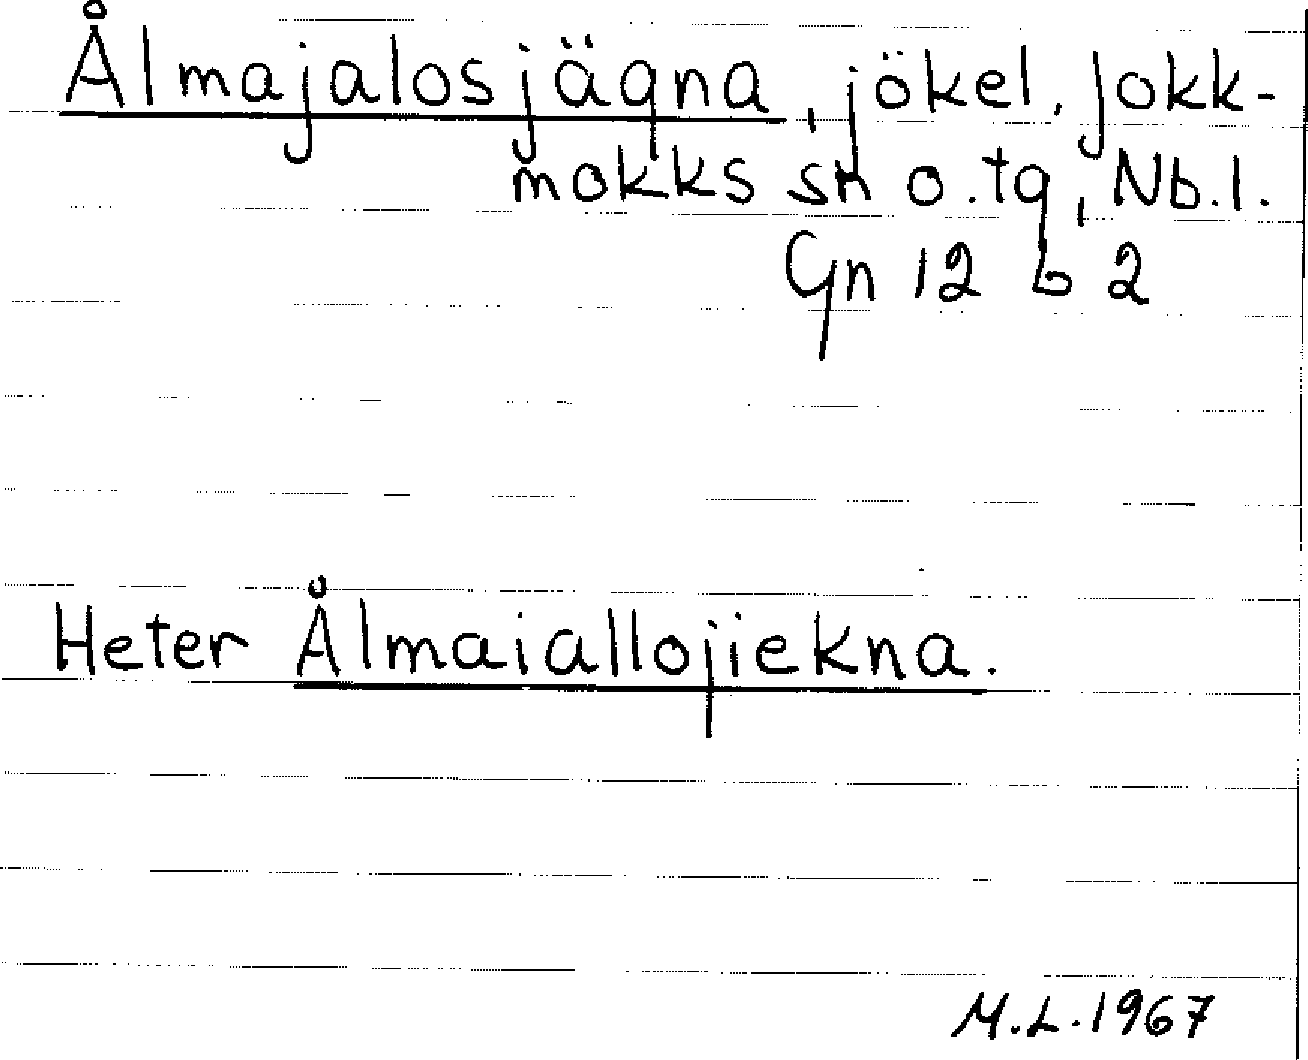 Ålmajalosjägna, jökel, Jokk-
mokks sn o. tg, Nb.l.
Gn 12 b 2
Heter Ålmaiallojiekna.
M.L. 1967